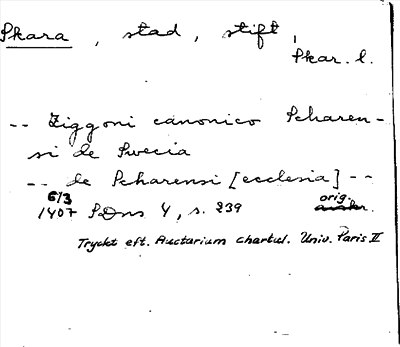 Skara, stad, stift,
Skar. l.
-- Ziggoni canonico Scharen-
si de Swecia
-- de Scharensi [ecclesia] --
6/3
1407 SDns 4, s. 239 orig.
Tryckt eft. Auctarium chartul. Univ. Paris II